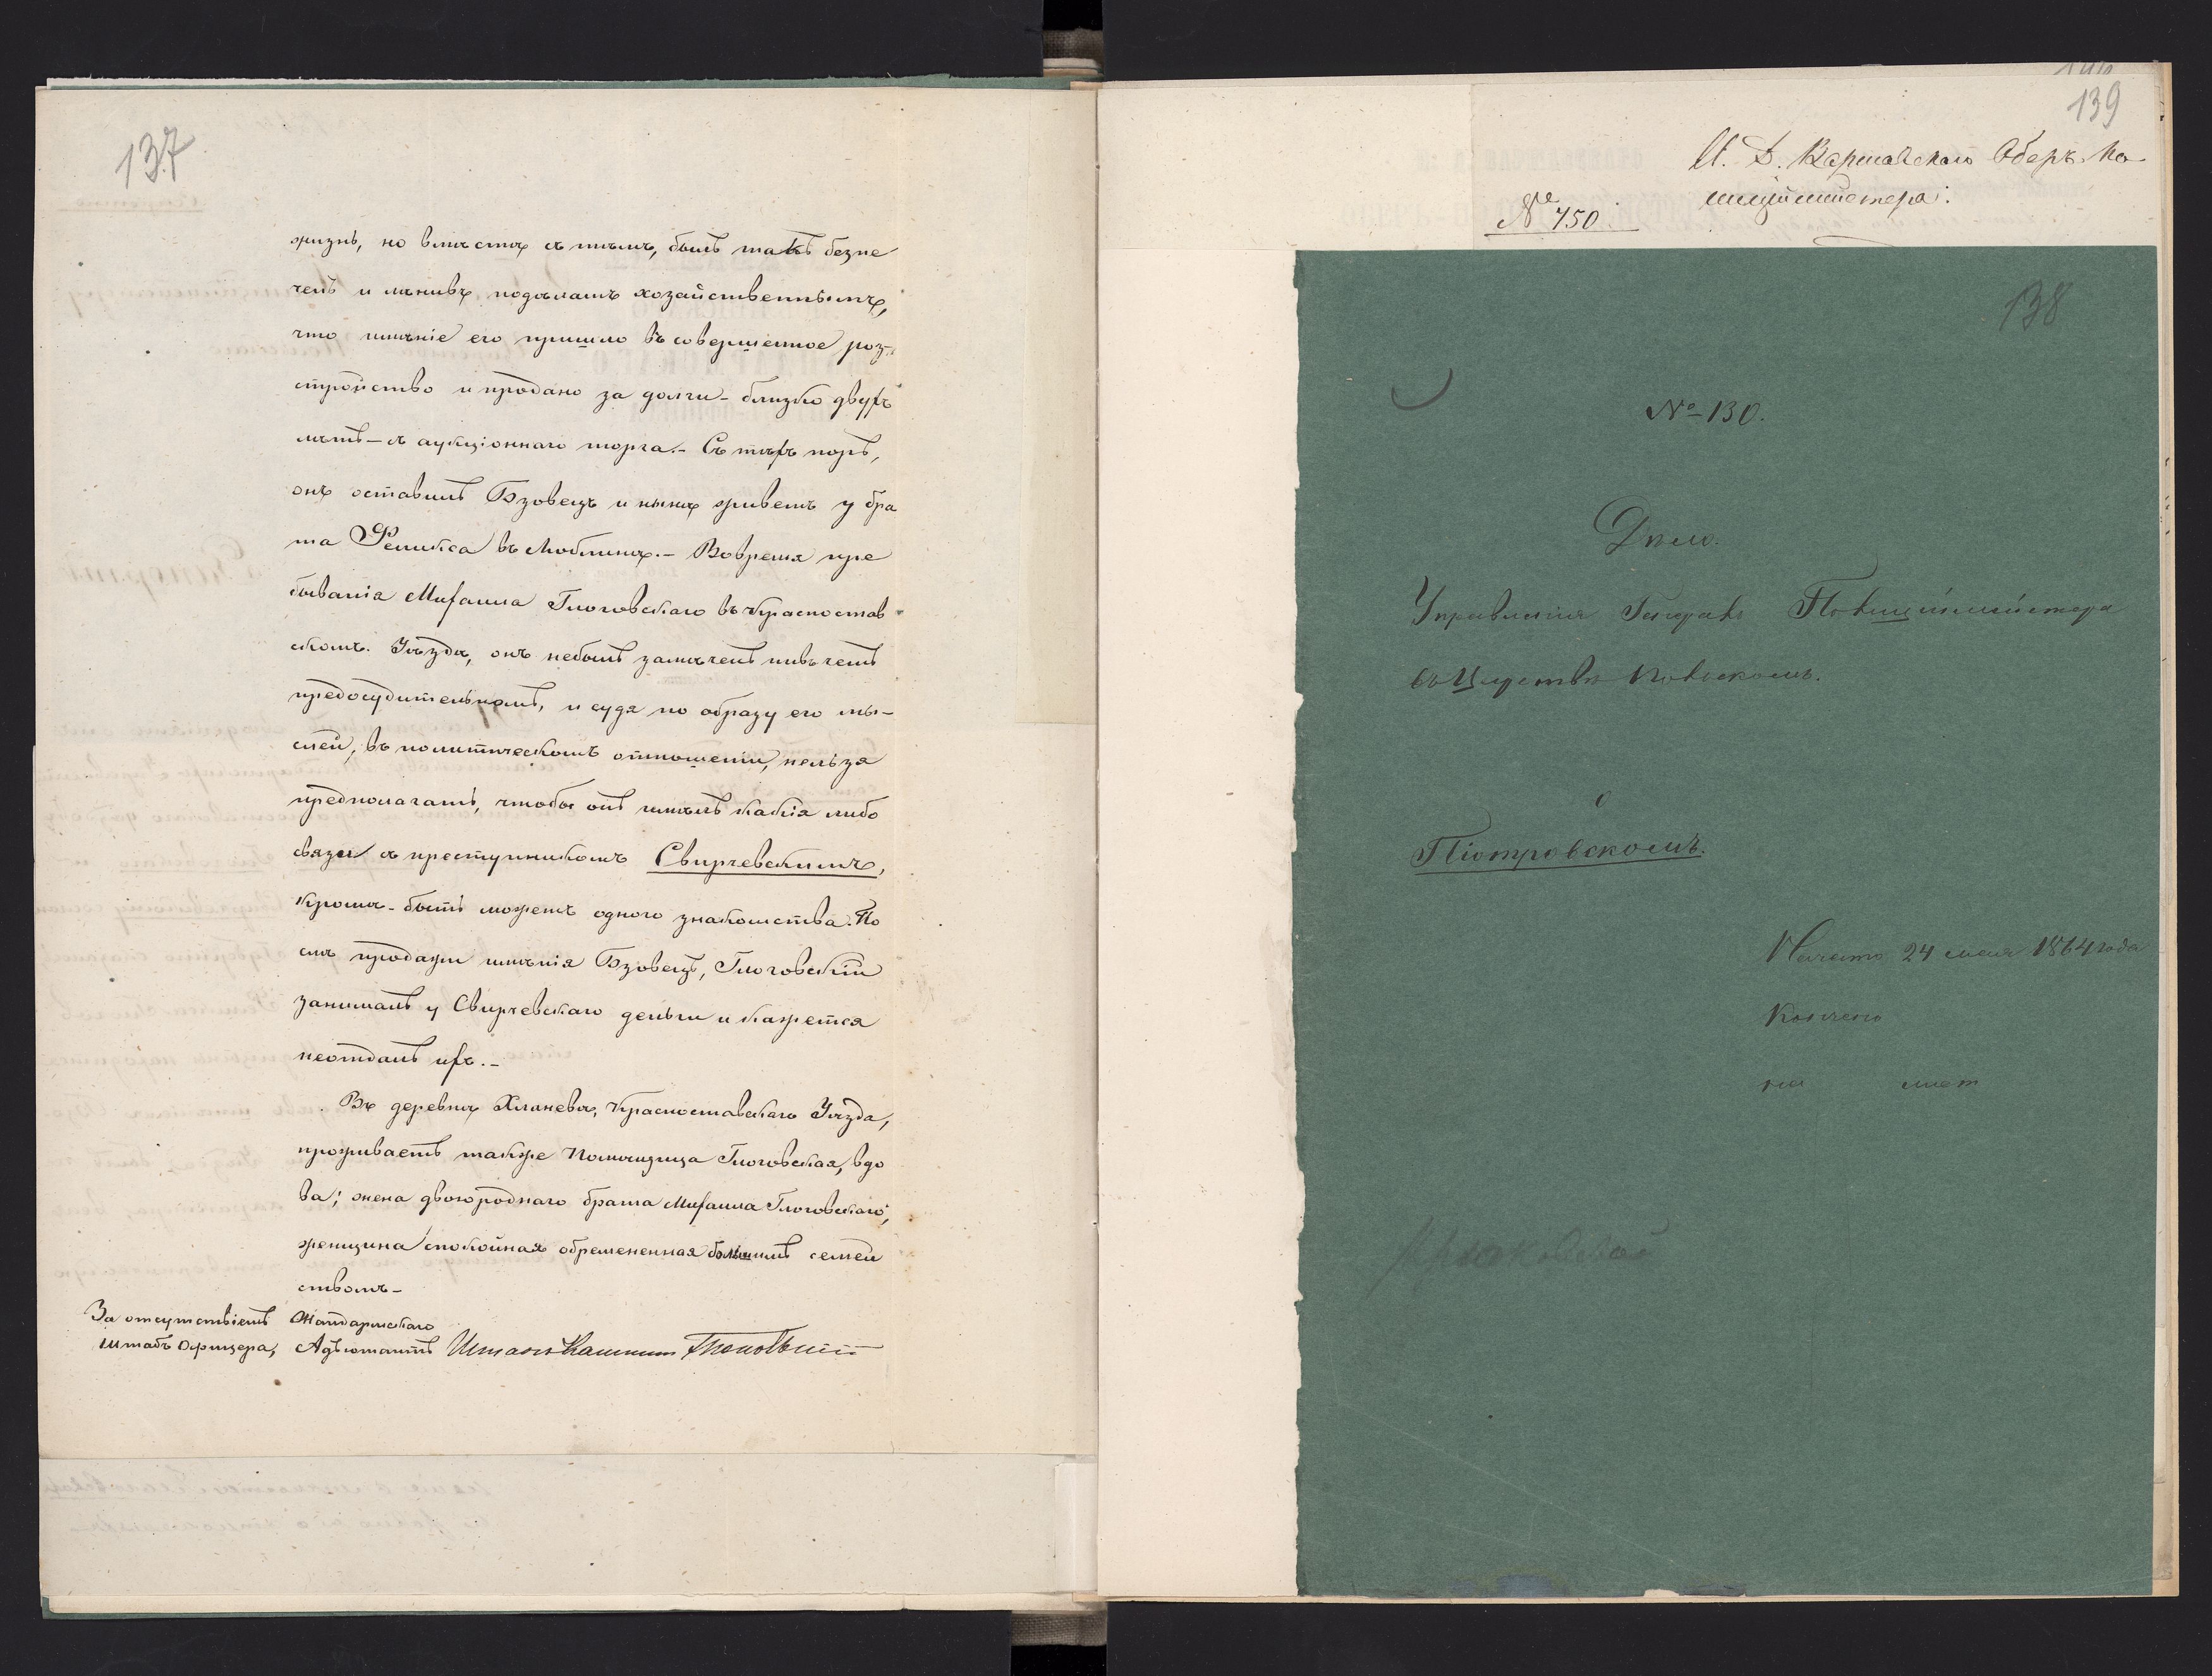 137
жизнь, но вмѣстѣ съ тѣмъ, былъ такъ безпе
ченъ и лѣнивъ подѣламъ хозайственнымъ,
что имѣніе его пришло въ совершенное роз-
стройство и продано за долги - близко двухъ
лѣтъ - съ аукціоннаго торга. - Съ тѣхъ поръ,
онъ оставилъ Бзовецъ и нынѣ живетъ у бра
та Феликса въ Люблинѣ. - Вовремя пре
быванія Михаила Глоговскаго въ Красностав
скомъ. Уѣздѣ, онъ небылъ замѣченъ нивъ чемъ
предосудительномъ, и судя по образу его мы-
слей, въ политическомъ отношеніи, нельзя
предполагать, чтобы онъ имѣлъ какія либо
связи съ преступникомъ Свирчевскимъ,
кромѣ - быть можетъ одного знакомства. По
слѣ продажи имѣнія Бзовецъ, Глоговскій
занималъ у Свирчевскаго деньги и кажется
неотдалъ ихъ. -
Въ деревнѣ Хланевѣ, Красноставскаго Уѣзда,
проживаетъ также Помѣщица Глоговская, вдо
ва; жена двоюроднаго брата Михаила Глоговскаго,
женщина спокойная обремененная большимъ семей
ствомъ -
За отсутствіемъ Жандармскаго
Штабъ Офицера, Адъютантъ Штабсъ Капитанъ
139
И. Д. Варшавскаго Оберъ-По-
лиціймейстера:
№ 750
138
№ 130.
Дѣло.
Управленія Генералъ Полиціймейстера
въ Царствѣ Польскомъ.
о
Піотровскомъ.
Начато 24 мая 1864 года
Кончено
на лист